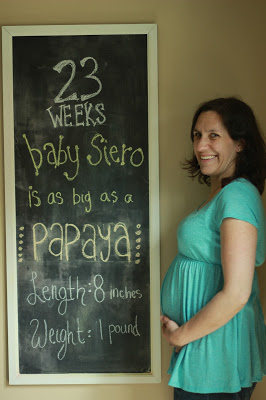 23
WEEKS
baby Siero
is as big as a
PAPAYA
Length: 8 inches
Weight: 1 pound